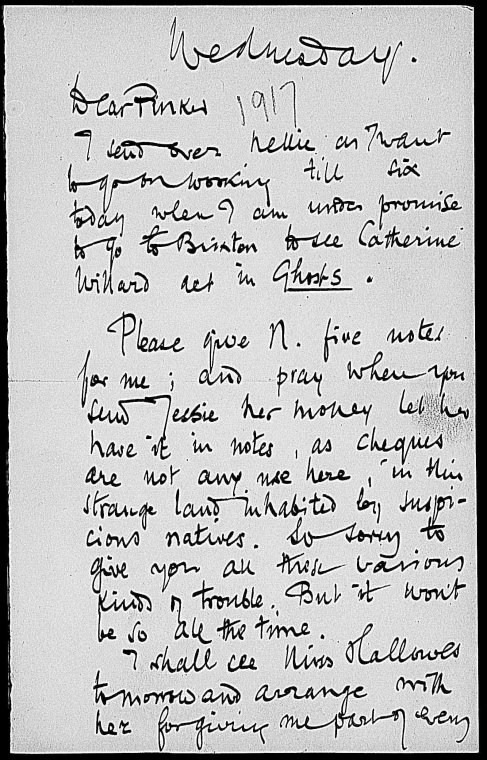 Wednesday.
Dear Pinker 1917
I send over Nellie as I want
to go on working till six
today when I am under promise
to go to Brixton to see Catherine
Willard act in Ghosts.
Please give N. five notes
for me; and pray when you
send Jessie her money let her
have it in notes, as cheques
are not any use here, in this
strange land inhabited by suspi-
cious natives. So sorry to
give you all these various
kinds of trouble. But it won't
be so all the time.
I shall see Miss Hallowes
tomorrow and arrange with
her for giving me part of every